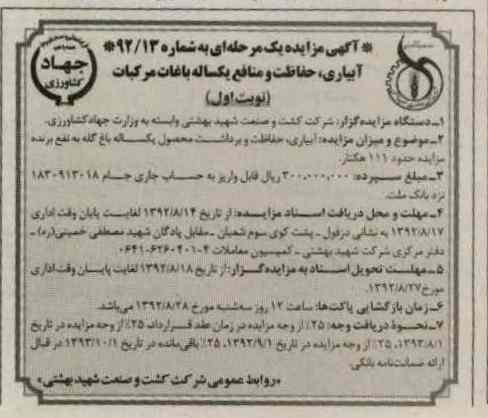 * آگهی مزایده یک مرحله‌ای به شماره ۹۲/۱۳ *
آبیاری، حفاظت و منافع یکساله باغات مرکبات
(نوبت اول)
جهاد
کشاورزی
۱ـ دستگاه مزایده‌گزار: شرکت کشت و صنعت شهید بهشتی وابسته به وزارت جهاد کشاورزی.
۲ـ موضوع و میزان مزایده: آبیاری، حفاظت و برداشت محصول یکساله باغ گله به نفع برنده
مزایده حدود ۱۱۱ هکتار.
۳ـ مبلغ سپرده: ۳۰۰,۰۰۰,۰۰۰ ریال قابل واریز به حساب جاری جام ۱۸۳۰۹۱۳۰۱۸
نزد بانک ملت.
۴ـ مهلت و محل دریافت اسناد مزایده: از تاریخ ۱۳۹۲/۸/۱۴ لغایت پایان وقت اداری
۱۳۹۲/۸/۱۷ به نشانی دزفول ـ پشت کوی سوم شعبان ـ مقابل پادگان شهید مصطفی خمینی(ره) ـ
دفتر مرکزی شرکت شهید بهشتی ـ کمیسیون معاملات ۴-۰۶۴۱-۶۲۶۰۴۰۱
۵ـ مهلت تحویل اسناد به مزایده‌گزار: از تاریخ ۱۳۹۲/۸/۱۸ لغایت پایان وقت اداری
مورخ ۱۳۹۲/۸/۲۷.
۶ـ زمان بازگشایی پاکت‌ها: ساعت ۱۲ روز سه‌شنبه مورخ ۱۳۹۲/۸/۲۸ می‌باشد.
۷ـ نحوه دریافت وجه: ۲۵٪ از وجه مزایده در زمان عقد قرارداد، ۲۵٪ از وجه مزایده در تاریخ
۲۵٪ از وجه مزایده در تاریخ ۱۳۹۲/۹/۱، ۲۵٪ باقی‌مانده در تاریخ ۱۳۹۳/۱۰/۱ در قبال
ارائه ضمانت‌نامه بانکی.
«روابط عمومی شرکت کشت و صنعت شهید بهشتی»